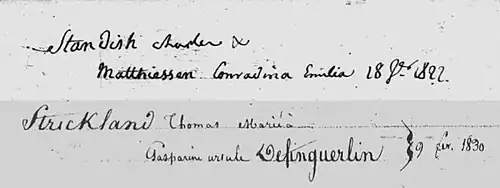 Standish charles &
Matthiessen Conradina Emilia 18 1822
Strickland Thomas Marie à
Gasparine ursule Definguerlin 9 fév. 1830